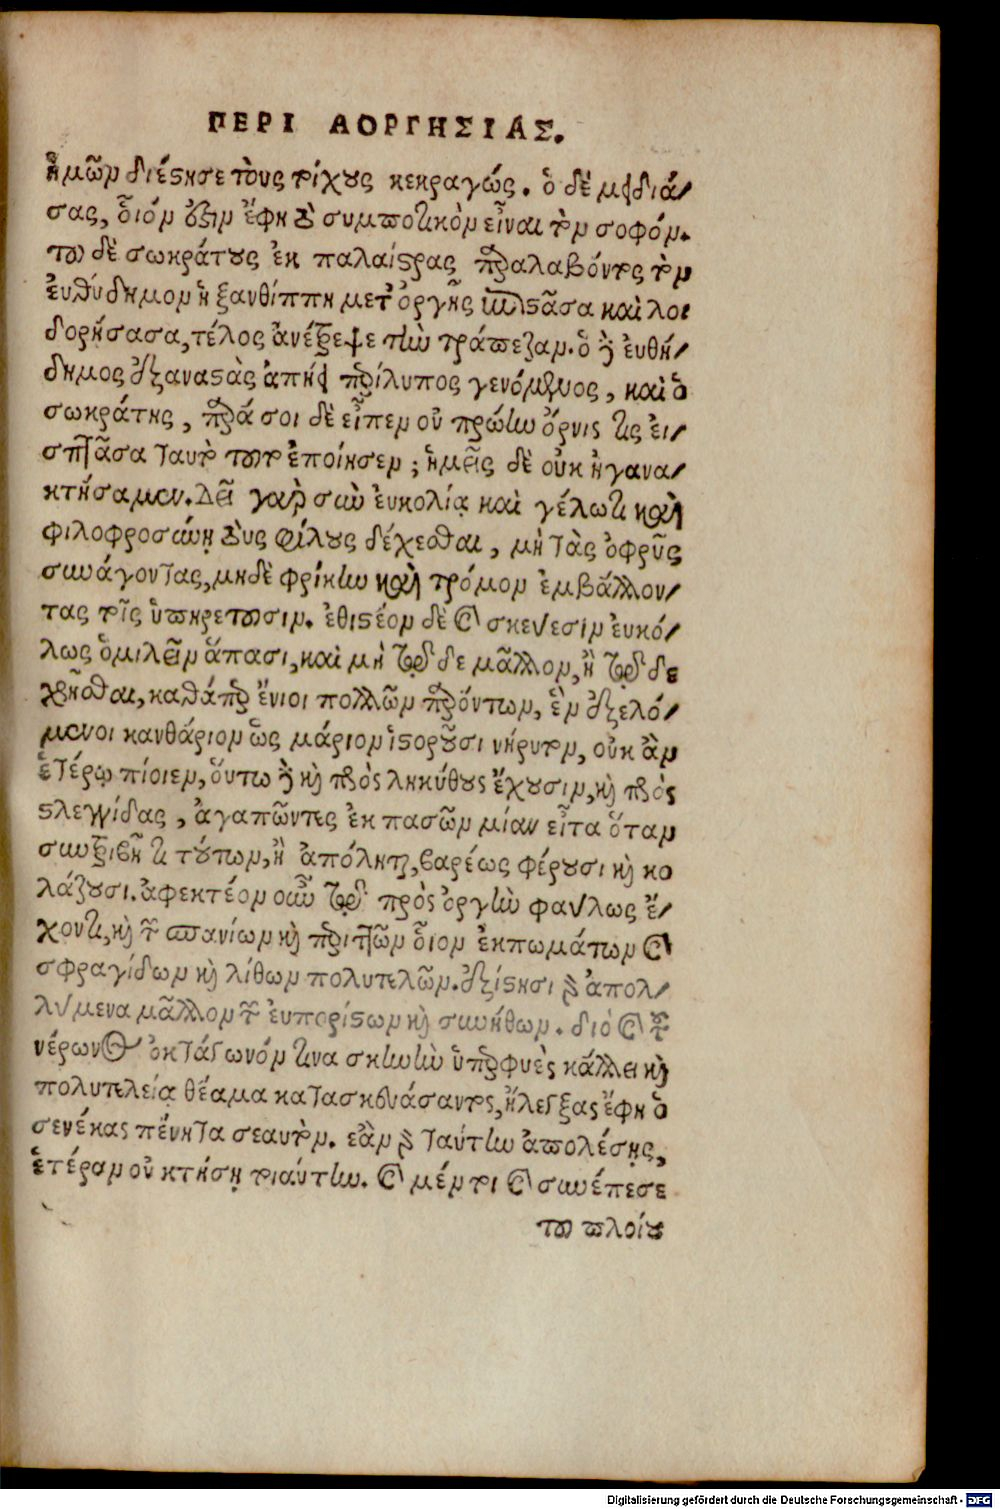 ΠΕΡΙ ΑΟΡΓΗΣΙΑΣ.
ἡμῶν διέστησε τοὺς τοίχους κεκραγώς. ὁ δὲ μειδιά-
σας, οἷόν ἐστιν ἔφη τὸ συμποτικὸν εἶναι τὸν σοφόν.
τοῦ δὲ σωκράτους ἐκ παλαίστρας παραλαβόντος τὸν
ἐυθύδημον ἡ ξανθίππη μετ' ὀργῆς ἐπιστᾶσα καὶ λοι
δορήσασα, τέλος ἀνέτρεψε τὴν τράπεζαν. ὁ δὲ ἐυθή-
δημος ἐξαναστὰς ἀπήει περίλυπος γενόμενος, καὶ ὁ
σωκράτης, παρά σοι δὲ εἶπεν οὐ πρώην ὄρνις τις εἰ-
σπτᾶσα ταυτὸ τοῦτο ἐποίησεν; ἡμεῖς δὲ οὐκ ἠγανα-
κτήσαμεν. Δεῖ γὰρ σὺν ἐυκολίᾳ καὶ γέλωτι καὶ
φιλοφροσύνῃ τοὺς φίλους δέχεσθαι, μὴ τὰς ὀφρῦς
συνάγοντας, μηδὲ φρίκην καὶ τρόμον ἐμβάλλον-
τας τοῖς ὑπηρετοῦσιν. ἐθιστέον δὲ καὶ σκεύεσιν ἐυκό-
λως ὁμιλεῖν ἅπασι, καὶ μὴ τῷδε μᾶλλον, ἢ τῷδε
χρῆσθαι, καθάπερ ἔνιοι πολλῶν παρόντων, ἓν ἐξελό-
μενοι κανθάριον ὡς μάριον ἱστοροῦσι νήρυτον, οὐκ ἂν
ἑτέρῳ πίοιεν, ὅυτω δὲ καὶ πρὸς ληκύθους ἔχουσιν, καὶ πρὸς
στλεγγίδας, ἀγαπῶντες ἐκ πασῶν μίαν εἶτα ὅταν
συντριβῇ τι τούτων, ἢ ἀπόληται, βαρέως φέρουσι καὶ κο
λάζουσι. ἀφεκτέον οὖν τῷ πρὸς ὀργὴν φαύλως ἔ-
χοντι, καὶ τῶν σπανίων καὶ περιττῶν οἷον ἐκπωμάτων καὶ
σφραγίδων καὶ λίθων πολυτελῶν. ἐξίστησι γὰρ ἀπολ-
λύμενα μᾶλλον τῶν ἐυπορίστων καὶ συνήθων. διὸ καὶ τοῦ
νέρωνος ὀκτάγωνόν τινα σκηνὴν ὑπερφυὲς κάλλει καὶ
πολυτελείᾳ θέαμα κατασκευάσαντος, ἤλεγξας ἔφη ὁ
σενέκας πένητα σεαυτόν. ἐὰν γὰρ ταύτην ἀπολέσῃς,
ἑτέραν οὐ κτήσῃ τοιαύτην. καὶ μέντοι καὶ συνέπεσε
τοῦ πλοίου